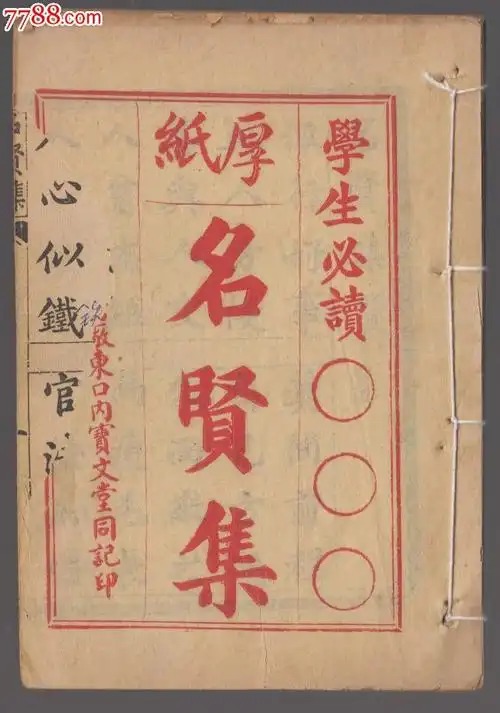 7788.com
學生必讀
厚紙
名賢集
啟東口內寶文堂同記印
心似鐵
官
賢集